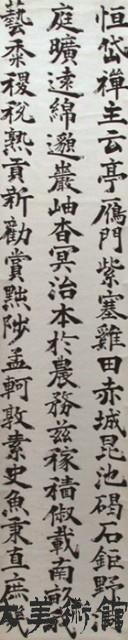 恒岱禪主云亭鴈門紫塞雞田赤城昆池碣石鉅野
庭曠遠綿邈巖岫杳冥治本於農務茲稼穡俶載南畝
藝黍稷稅熟貢新勸賞黜陟孟軻敦素史魚秉直庶
美術館